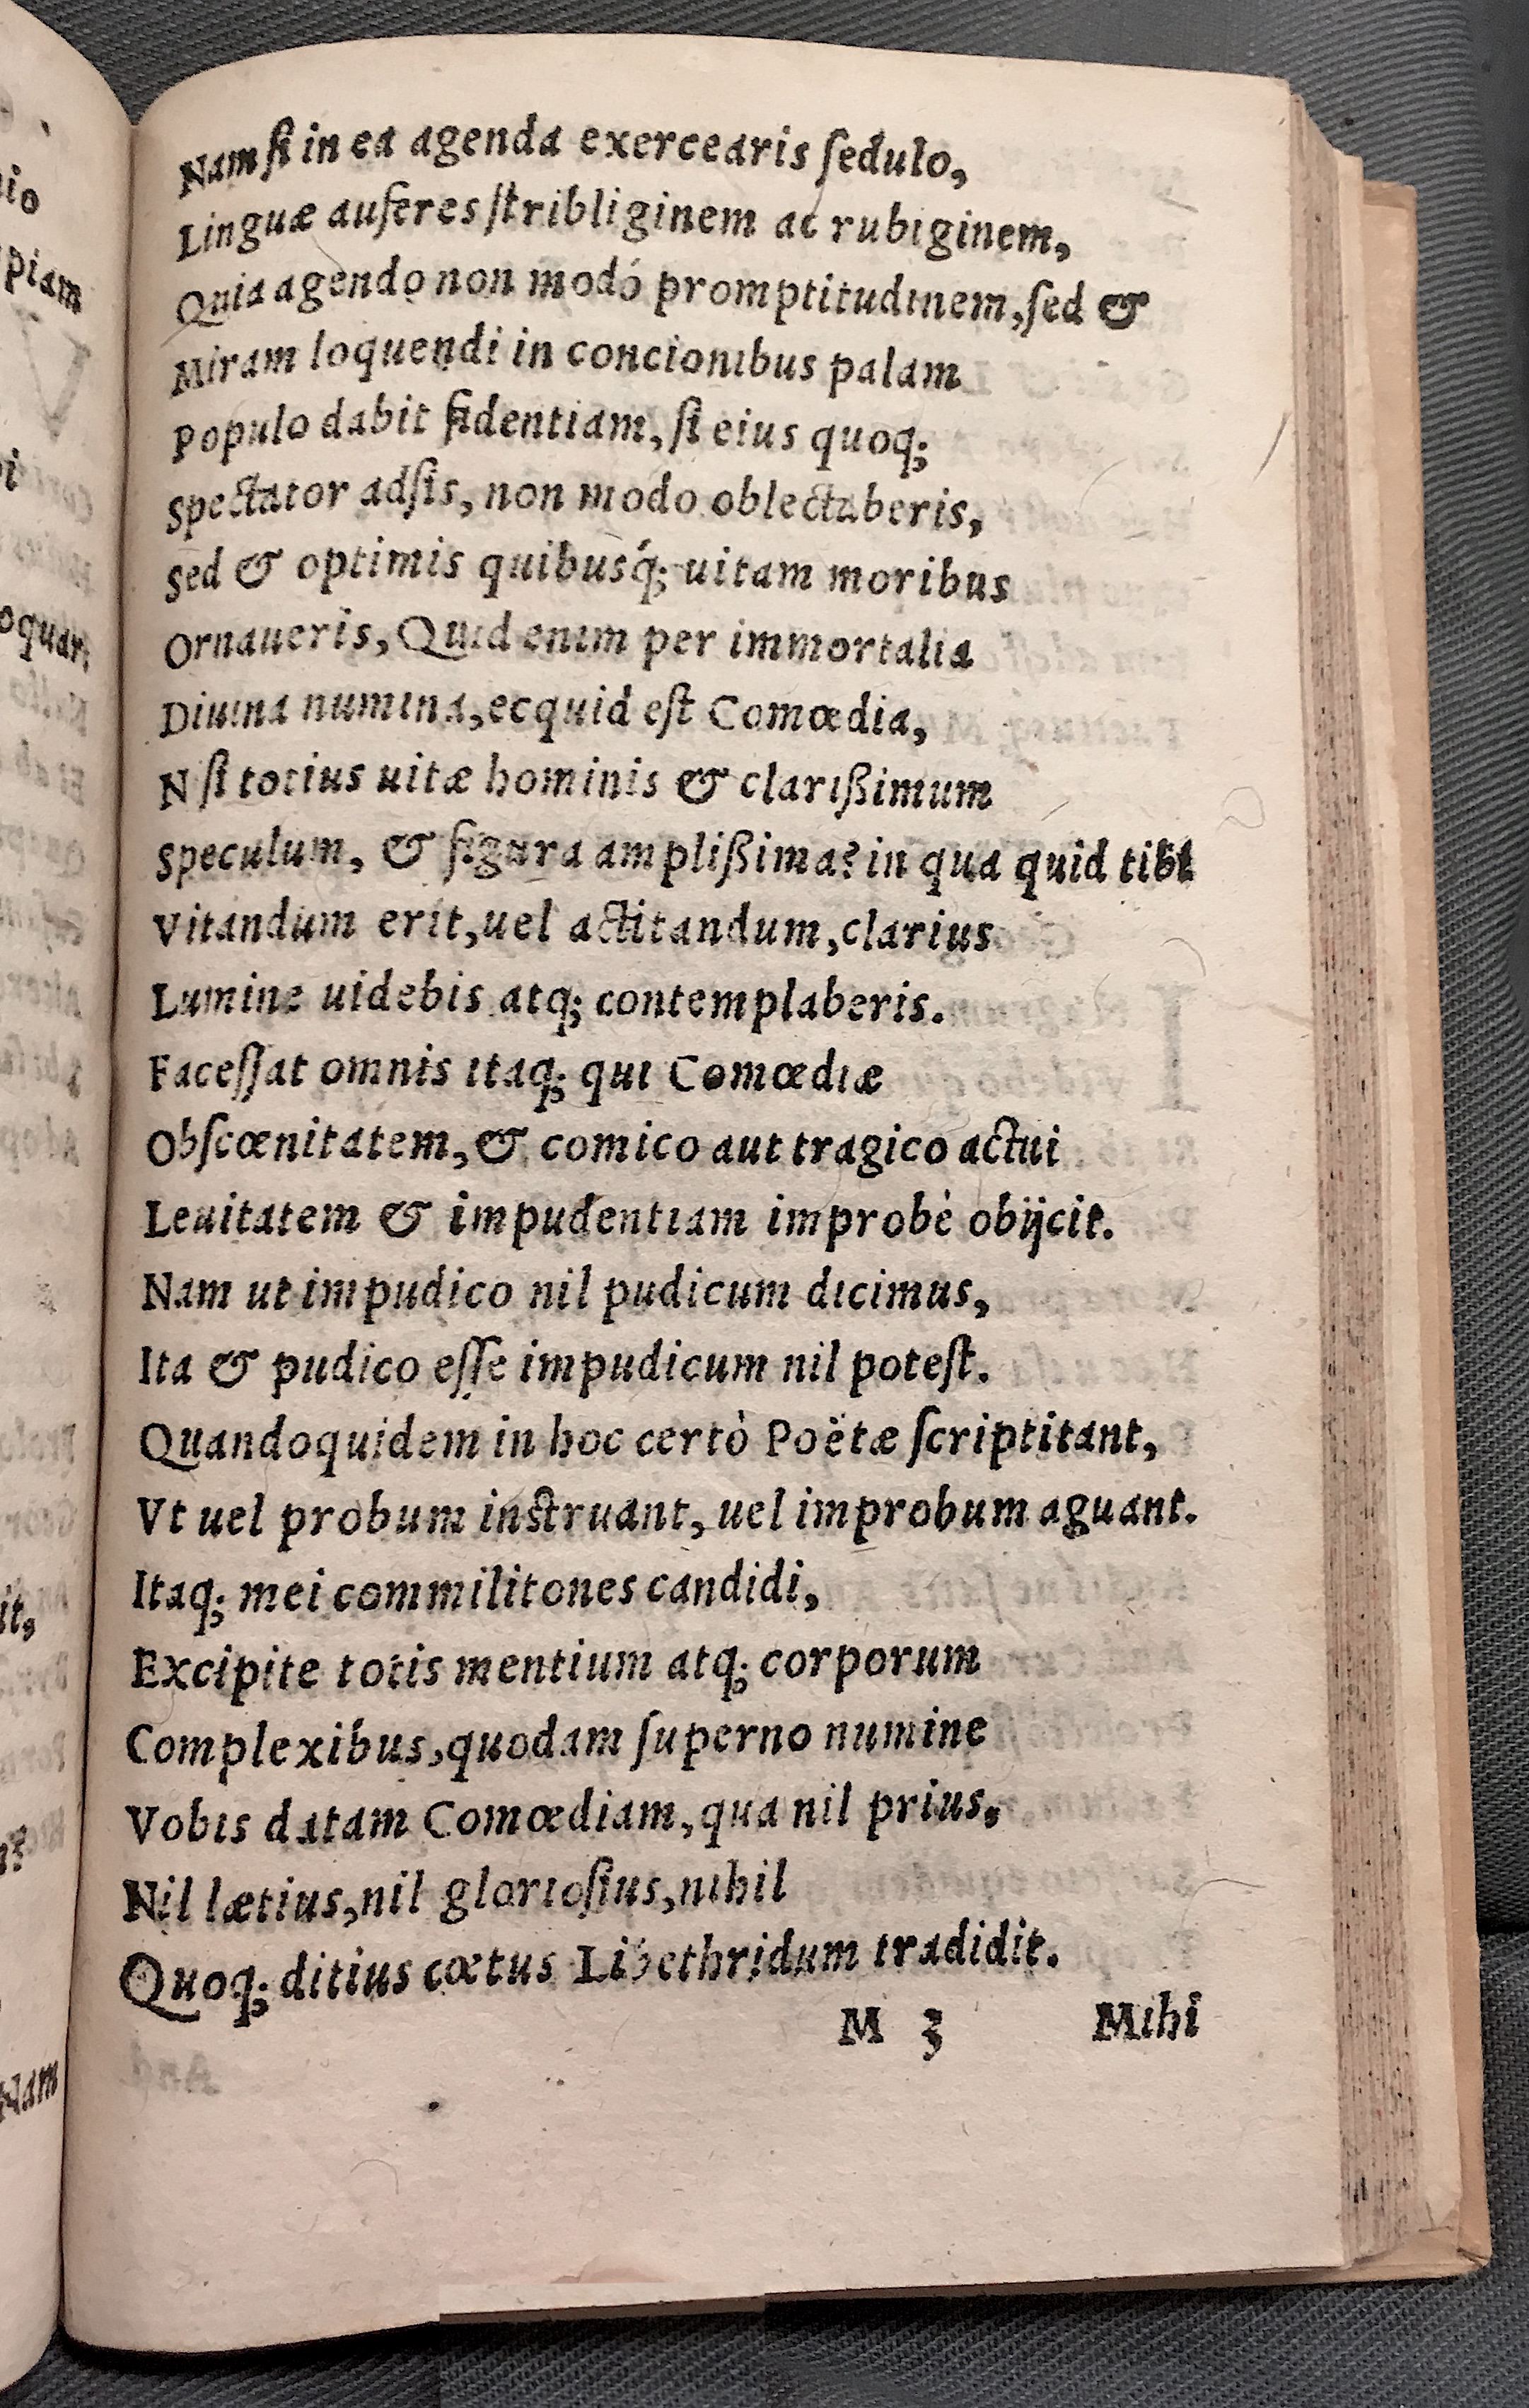 Nam ſi in ea agenda exercearis ſedulo,
Linguæ auferes ſtribliginem ac rubiginem,
Quia agendo non modò promptitudinem, ſed &
Miram loquendi in concionibus palam
Populo dabit fidentiam, ſi eius quoq;
Spectator adſis, non modo oblectaberis,
Sed & optimis quibusq́; uitam moribus
Ornaueris, Quid enim per immortalia
Diuina numina, ecquid eſt Comœdia,
Nſi totius uitæ hominis & clarißimum
Speculum, & figura amplißima? in qua quid tibi
Vitandum erit, uel actitandum, clarius
Lumine uidebis atq; contemplaberis.
Faceſſat omnis itaq; qui Comœdiæ
Obſcœnitatem, & comico aut tragico actui
Leuitatem & impudentiam improbè obijcit.
Nam ut impudico nil pudicum dicimus,
Ita & pudico eſſe impudicum nil poteſt.
Quandoquidem in hoc certò Poëtæ ſcriptitant,
Vt uel probum inſtruant, uel improbum aguant.
Itaq; mei commilitones candidi,
Excipite totis mentium atq; corporum
Complexibus, quodam ſuperno numine
Vobis datam Comœdiam, qua nil prius,
Nil lætius, nil glorioſius, nihil
Quoq; ditius cœtus Libethridum tradidit.
M 3 Mihi